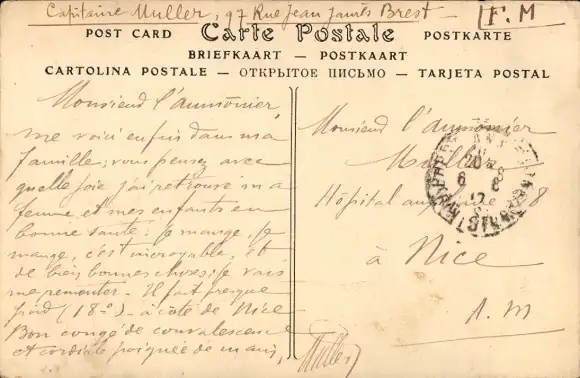 Capitaine Muller, 97 Rue Jean Jaurès Brest - F.M
POST CARD Carte Postale POSTKARTE
BRIEFKAART — POSTKAART
CARTOLINA POSTALE — ОТКРЫТОЕ ПИСЬМО — TARJETA POSTAL
Monsieur l'aumônier
me voici enfin dans ma
famille; vous pensez avec
quelle joie j'ai retrouvé ma
femme et mes enfants en
bonne santé: je mange, je
mange, c'est incroyable, et
de bien bonnes choses; je vais
me remonter - Il fait presque
froid (18°) - à côté de Nice
Bon congé de convalescence
et cordiale poignée de main,
Muller
Monsieur l'aumônier
Muller
Hôpital 8
à Nice
A. M